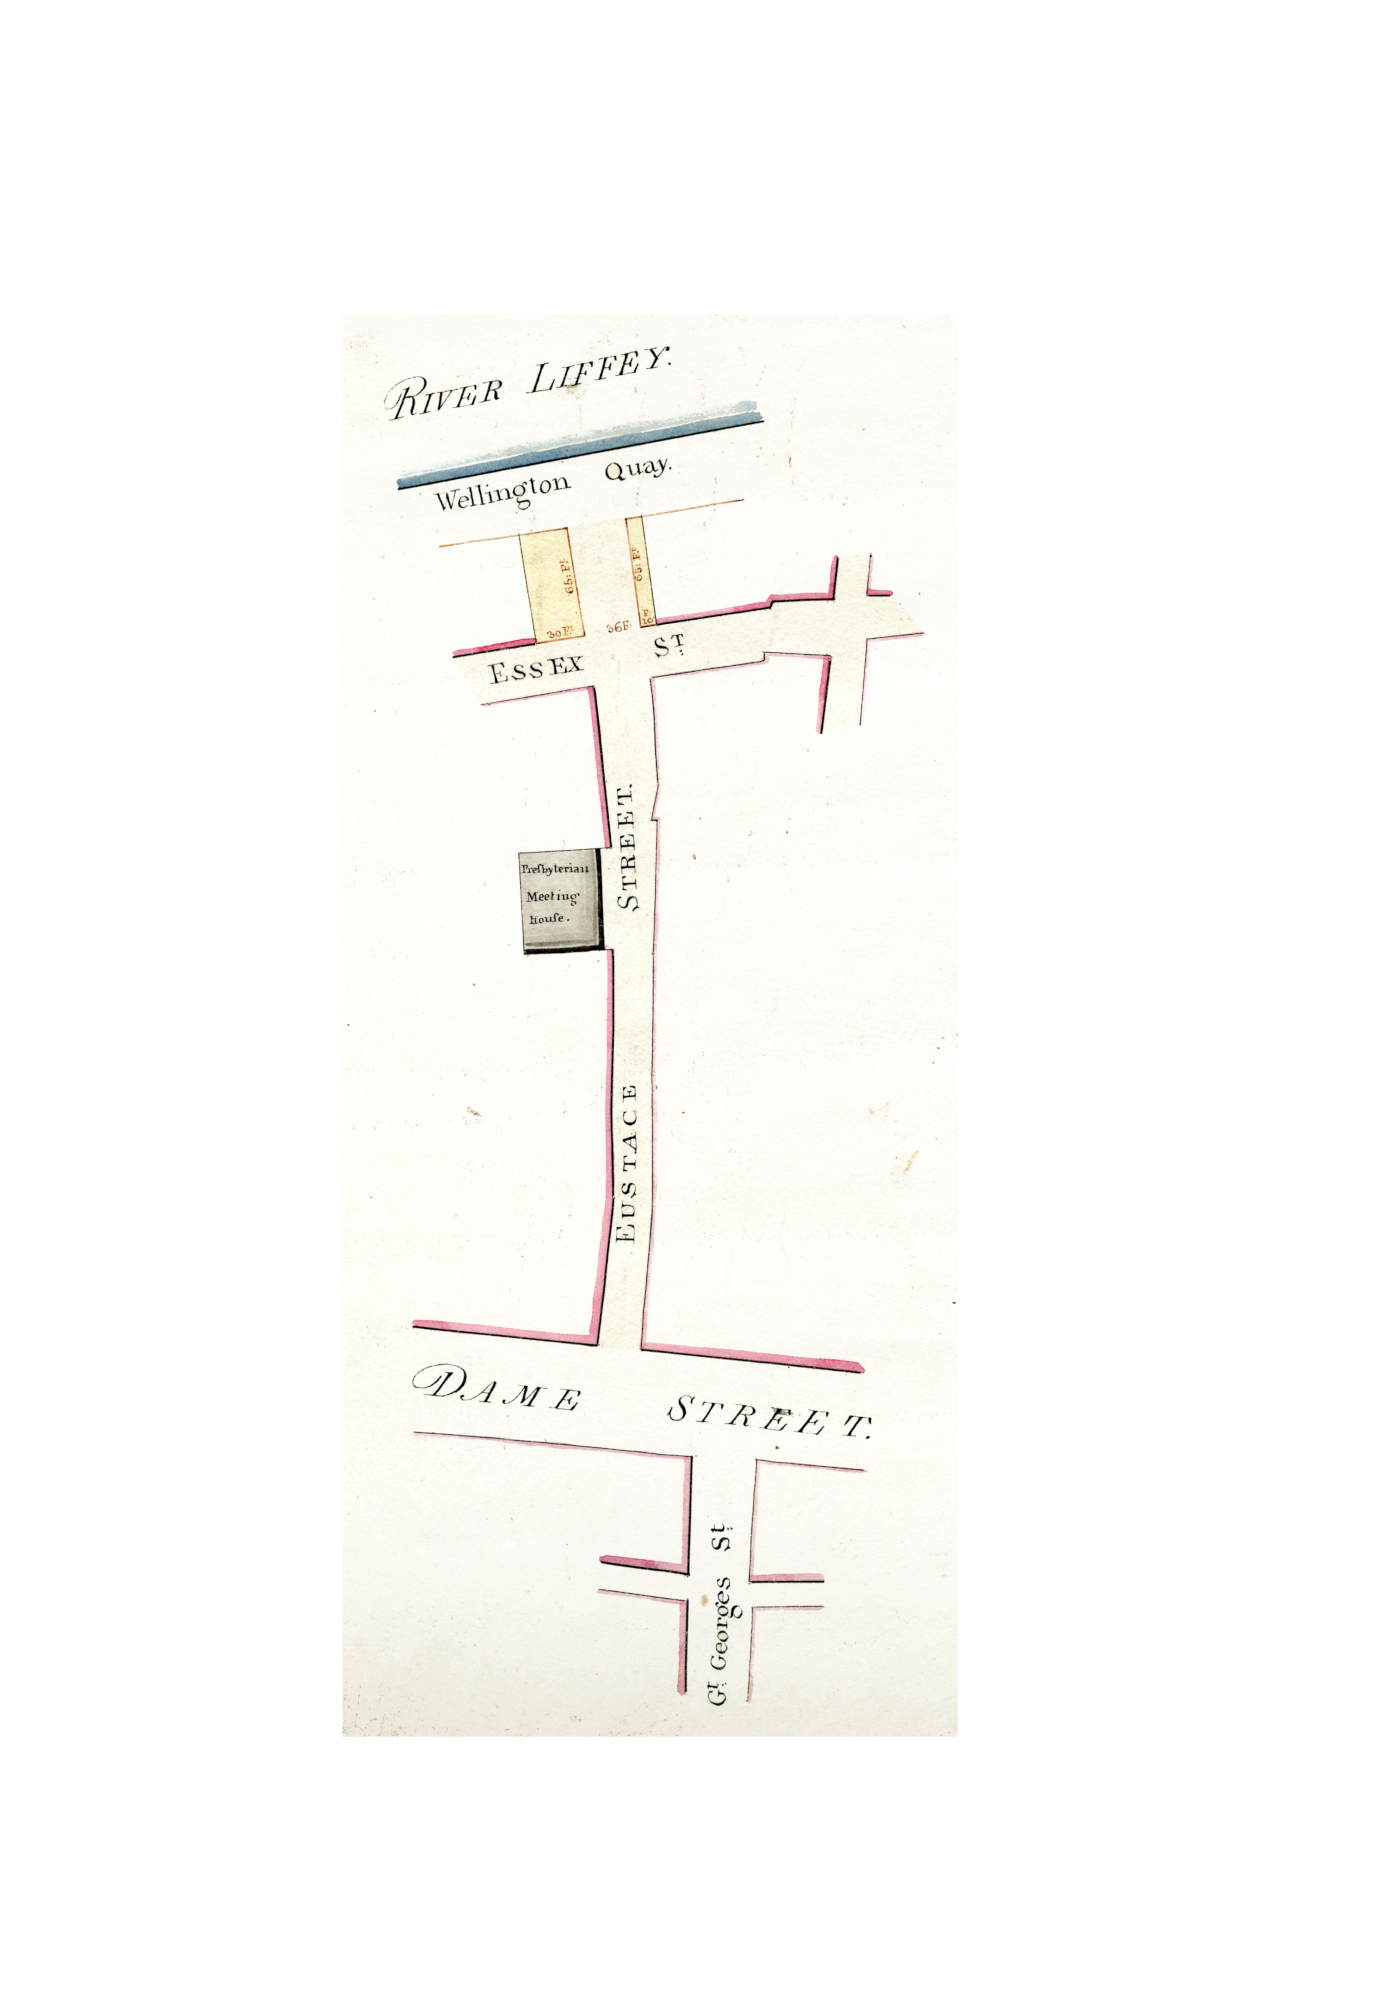 RIVER LIFFEY.
Wellington Quay.
65: Ft
65: Ft
30 Ft
36 F:
F 10
ESSEX ST:
Presbyterian
Meeting
House.
EUSTACE STREET.
DAME STREET.
Gt Georges St: